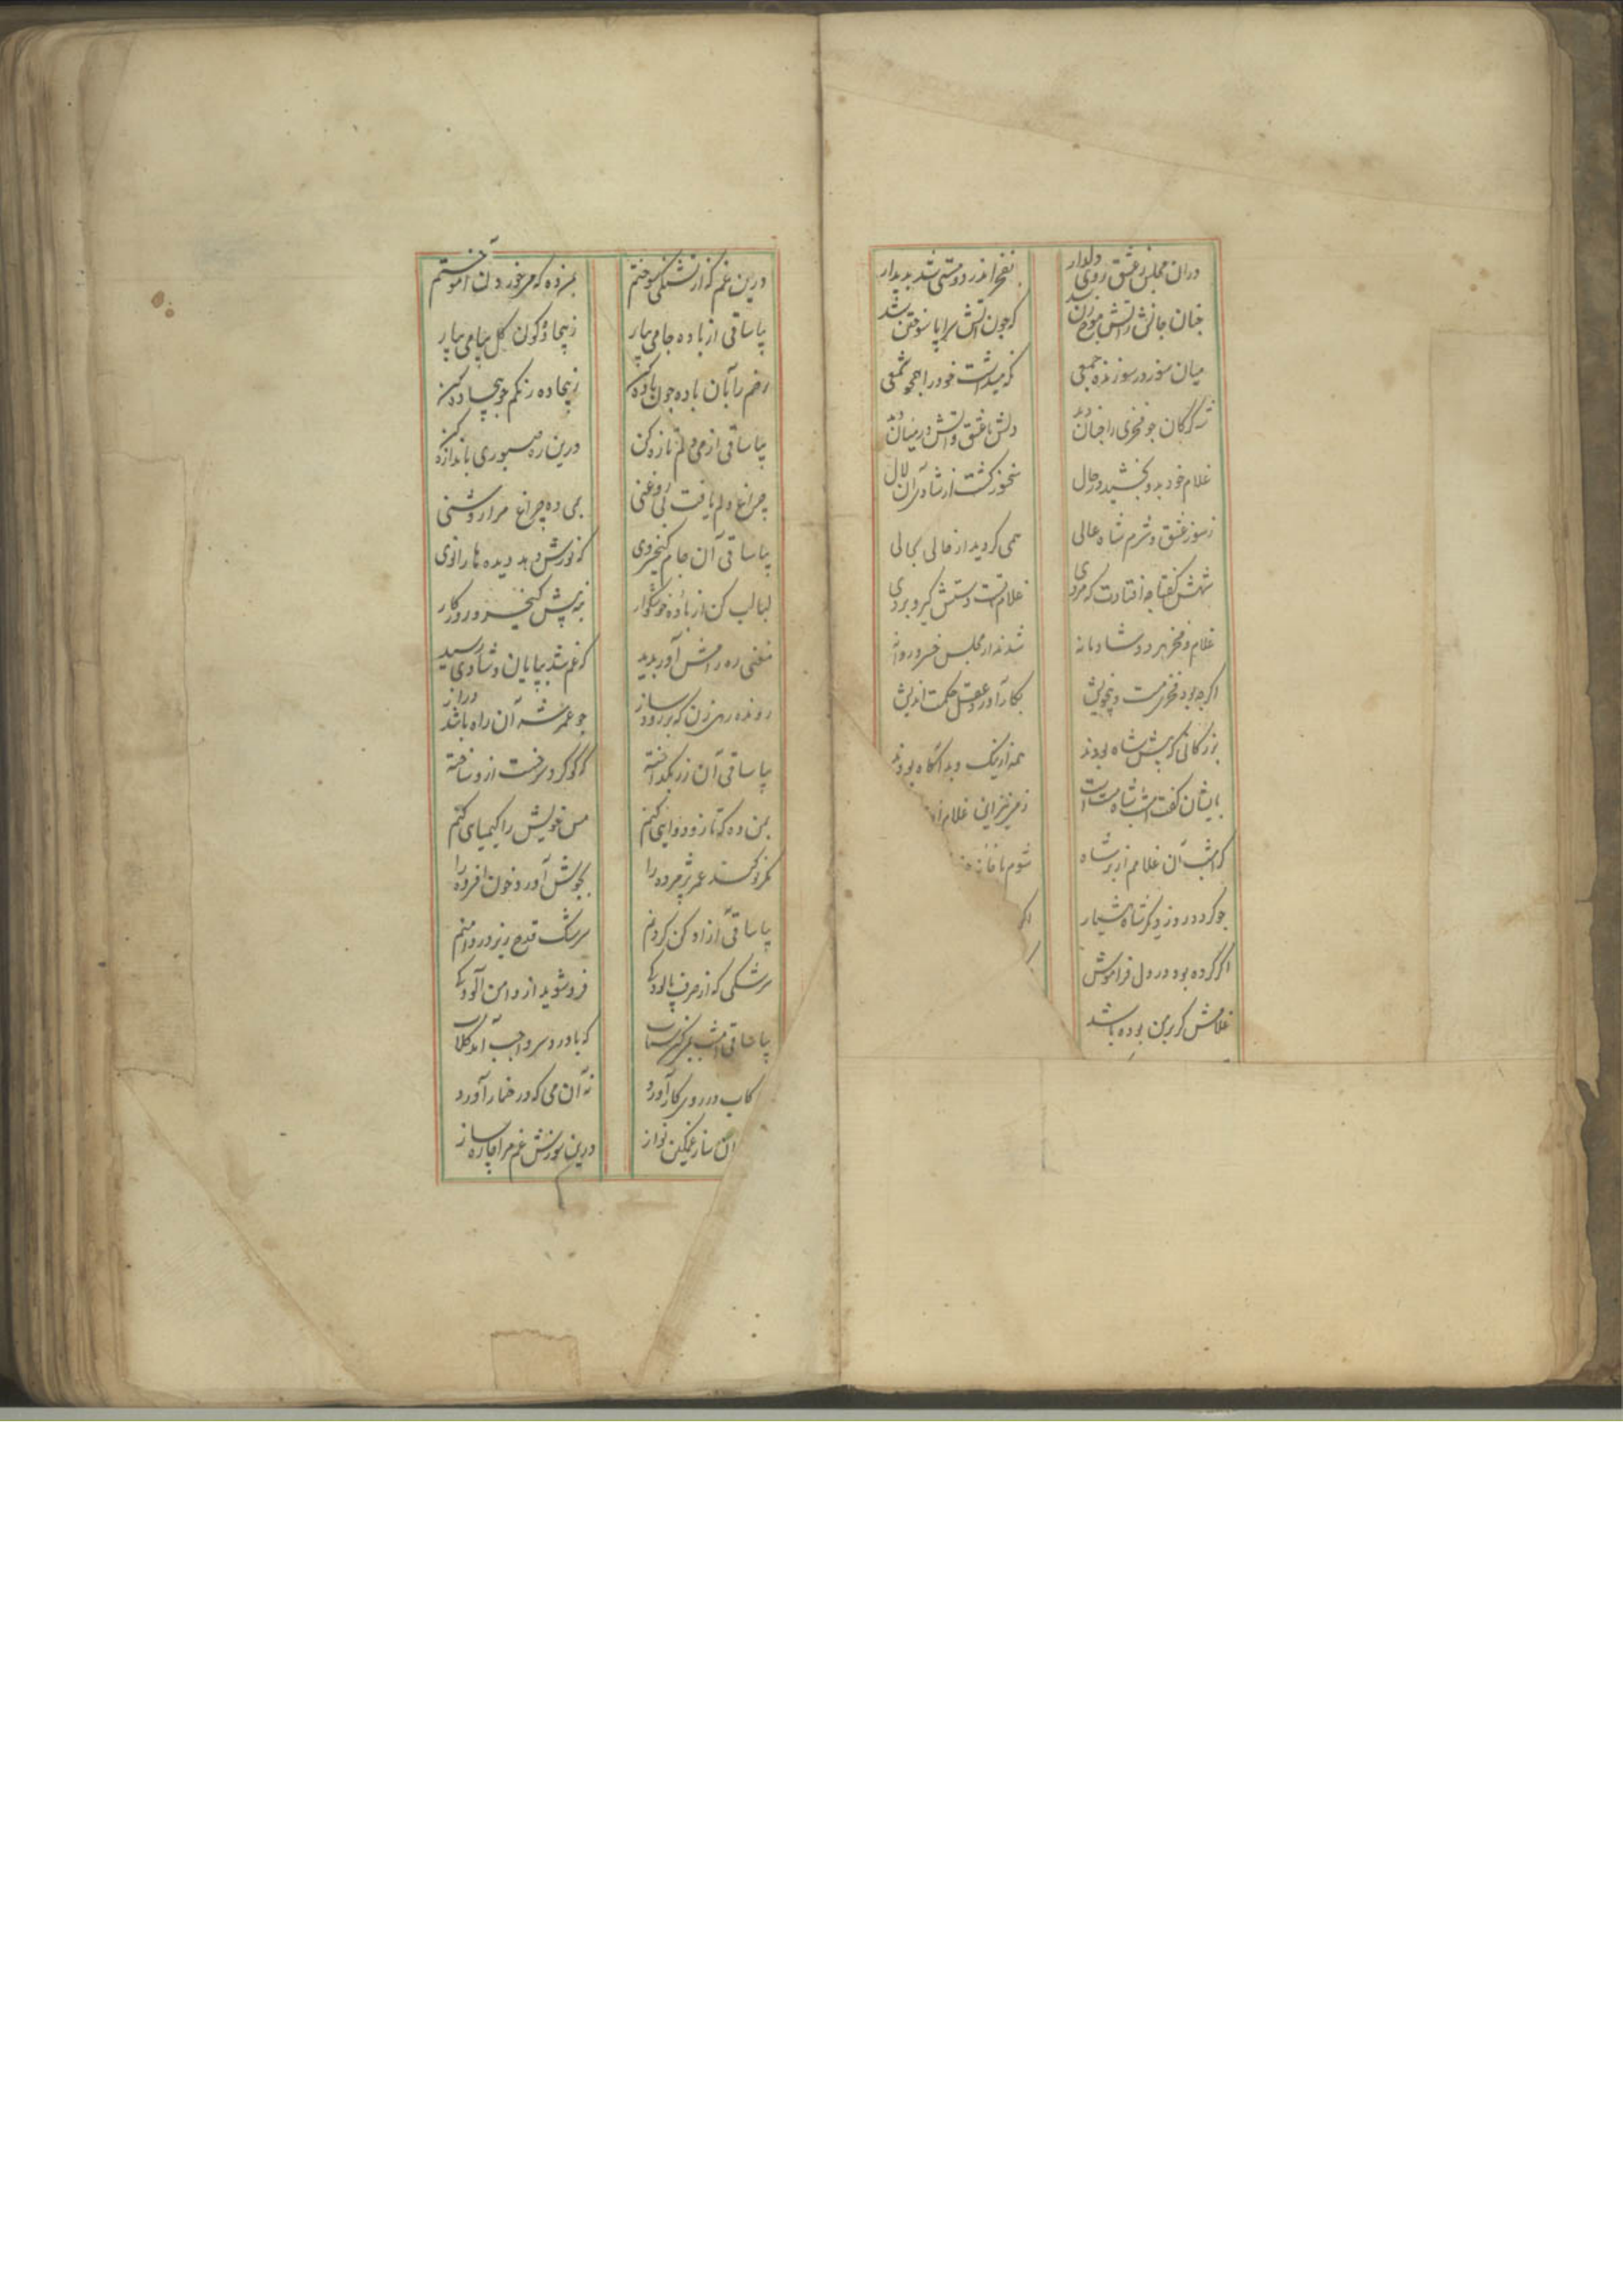 دران مجلس ز عشق روی دلدار
بفخر اندر دو مستی شد پدیدار
جنان جانش ز اتش موج زن شد
که جون اتش سراپا سوختن شد
میان سوز در سوزنده جمعی
که میداشت خود را همجو شمعی
شه کرکان جو فخری را جنان دید
دلش با عشق و اتش در میان دید
غلام خود بدو بخشید در حال
سخنور کشت از شادی آن لال
ز سوز عشق و شرم شاه عالی
همی کردید از حالی بحالی
شهش کفتا جه افتادت که مردی
غلام تست دستش کیر و بردی
غلام و فخر هر دو شادمانه
شدند از مجلس خسرو روانه
اکرجه بود فخری مست و بیخویش
بکار آورد عقل حکمت اندیش
بزرکانی که پیش شاه بودند
همه از نیک و بد آکاه بودند
بایشان کفت امشب شاه مست است
ز می غلام
که امشب آن غلامم از بر شاه
شوم با خانه
جو کردد روز دیکر شاه هشیار
اکر کرده بود در دل فراموش
غلامش کر برمن بوده باشد
درین غم که از تشنکی سوختم
بمن ده که می خوردن آموختم
بیا ساقی از باده جامی بیار
ز بیجاده کون کل پیامی بیار
رخم را بان باده جون باده کن
ز بیجاده رنکم جو بیجاده کن
بیا ساقی از می دلم تازه کن
درین ره صبوری باندازه کن
جراغ دلم یافت بی روغنی
بمی ده جراغ مرا روشنی
بیا ساقی آن جام کیخسروی
که نورش دهد دیده ها را نوی
لبالب کن از باده خوشکوار
بنه پیش کیخسرو روزکار
مغنی ره رامش آور پدید
که غم شد بپایان و شادی رسید
رونده رهی زن که بر رود ساز
جو عمر شه آن راه باشد دراز
بیا ساقی آن زر بکداخته
که کوکرد سرخست ازو ساخته
بمن ده که تا زو دوایی کنم
مس خویش را کیمیایی کنم
مکر نو کند عمر پژمرده را
بجوش آورد خون افسرده را
بیا ساقی آزاد کن کردنم
سرشک قدح ریز در دامنم
سرشکی که از صرف پالودکی
فرو شوید از دامن آلودکی
بیا ساقی امشب بمی کن شتاب
که با درد سر واجب آمد کلاب
کاب در روی کار آورد
نه آن می که در خمار آورد
آن ساز غمکین نواز
درین سوزش غم مرا چاره ساز